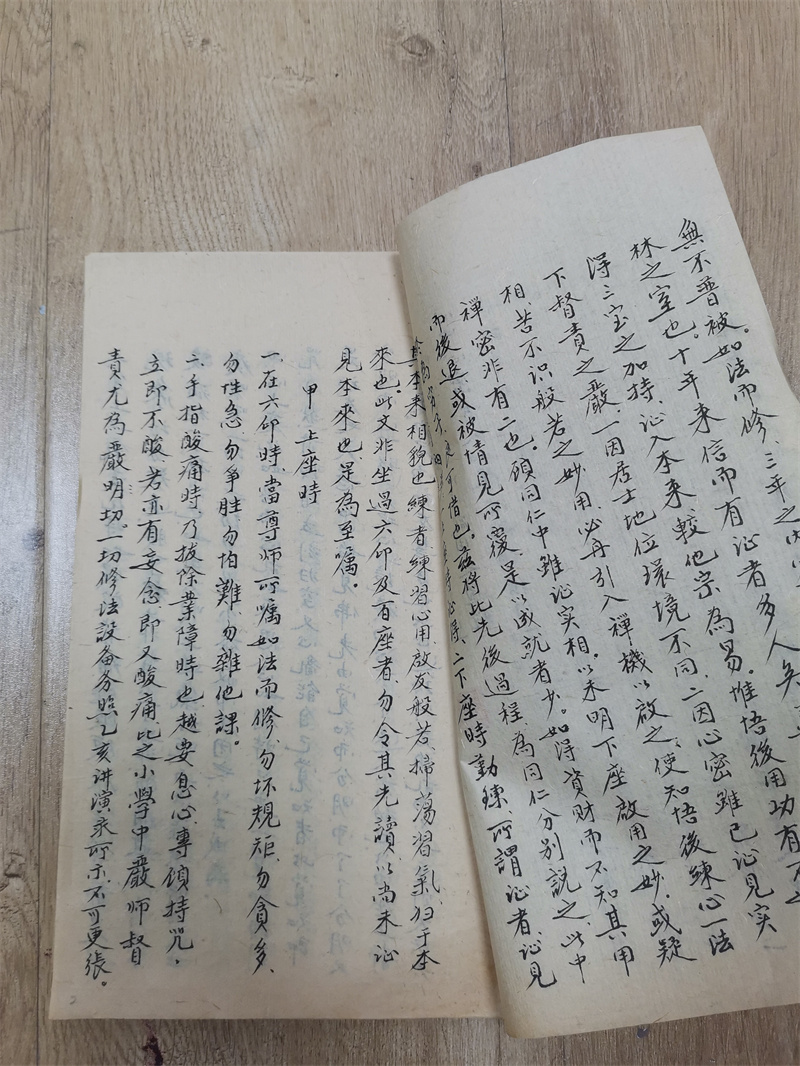 無不普被。如法而修、三年之内
林之室也。十年来信而有证者多人矣
得三宝之加持、证入本来較他宗為易。惟悟後用功有不
下督责之嚴、一因居士地位環境不同、二因心密雖已证見実
相、苦不識般若之妙用、必再引入禪機以啟之、使知悟後練心一法
禪密非有二也。顧同仁中雖证実相、以未明下座啟用之妙、或疑
而後退、或被情見所覆、是以成就者少。如得資財而不知其用
可惜也。兹将此先後過程、為同仁分别説之、此中
二下座時勤練。所謂证者、证見
其本来相貌也練者練習心用、啟发般若、掃荡習氣、归于本
來也。此文非坐過六印及百座者、勿令其先讀、以尚未证
見本來也、是為至嘱。
甲 上座時
一、在六印時、當尊师所嘱如法而修、勿坏規矩、勿貪多、
勿性急、勿争胜、勿怕難、勿雜他課。
二、手指酸痛時、乃拔除業障時也、越要息心、專领持咒、
立即不酸、若亦有妄念、即又酸痛、比之小學中嚴师督
责尤為嚴明切。一切修法設备务照乙亥讲演录所示、不可更张。